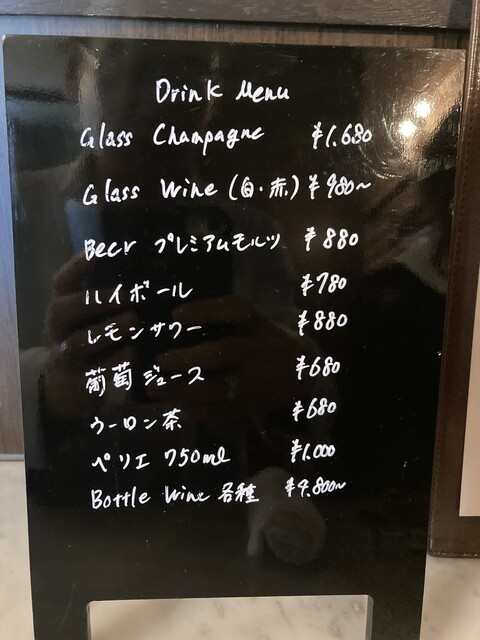 Drink Menu
Glass Champagne ¥1,680
Glass Wine (白・赤) ¥980~
Beer プレミアムモルツ ¥880
ハイボール ¥780
レモンサワー ¥880
葡萄ジュース ¥680
ウーロン茶 ¥680
ペリエ 750ml ¥1,000
Bottle Wine 各種 ¥4,800~